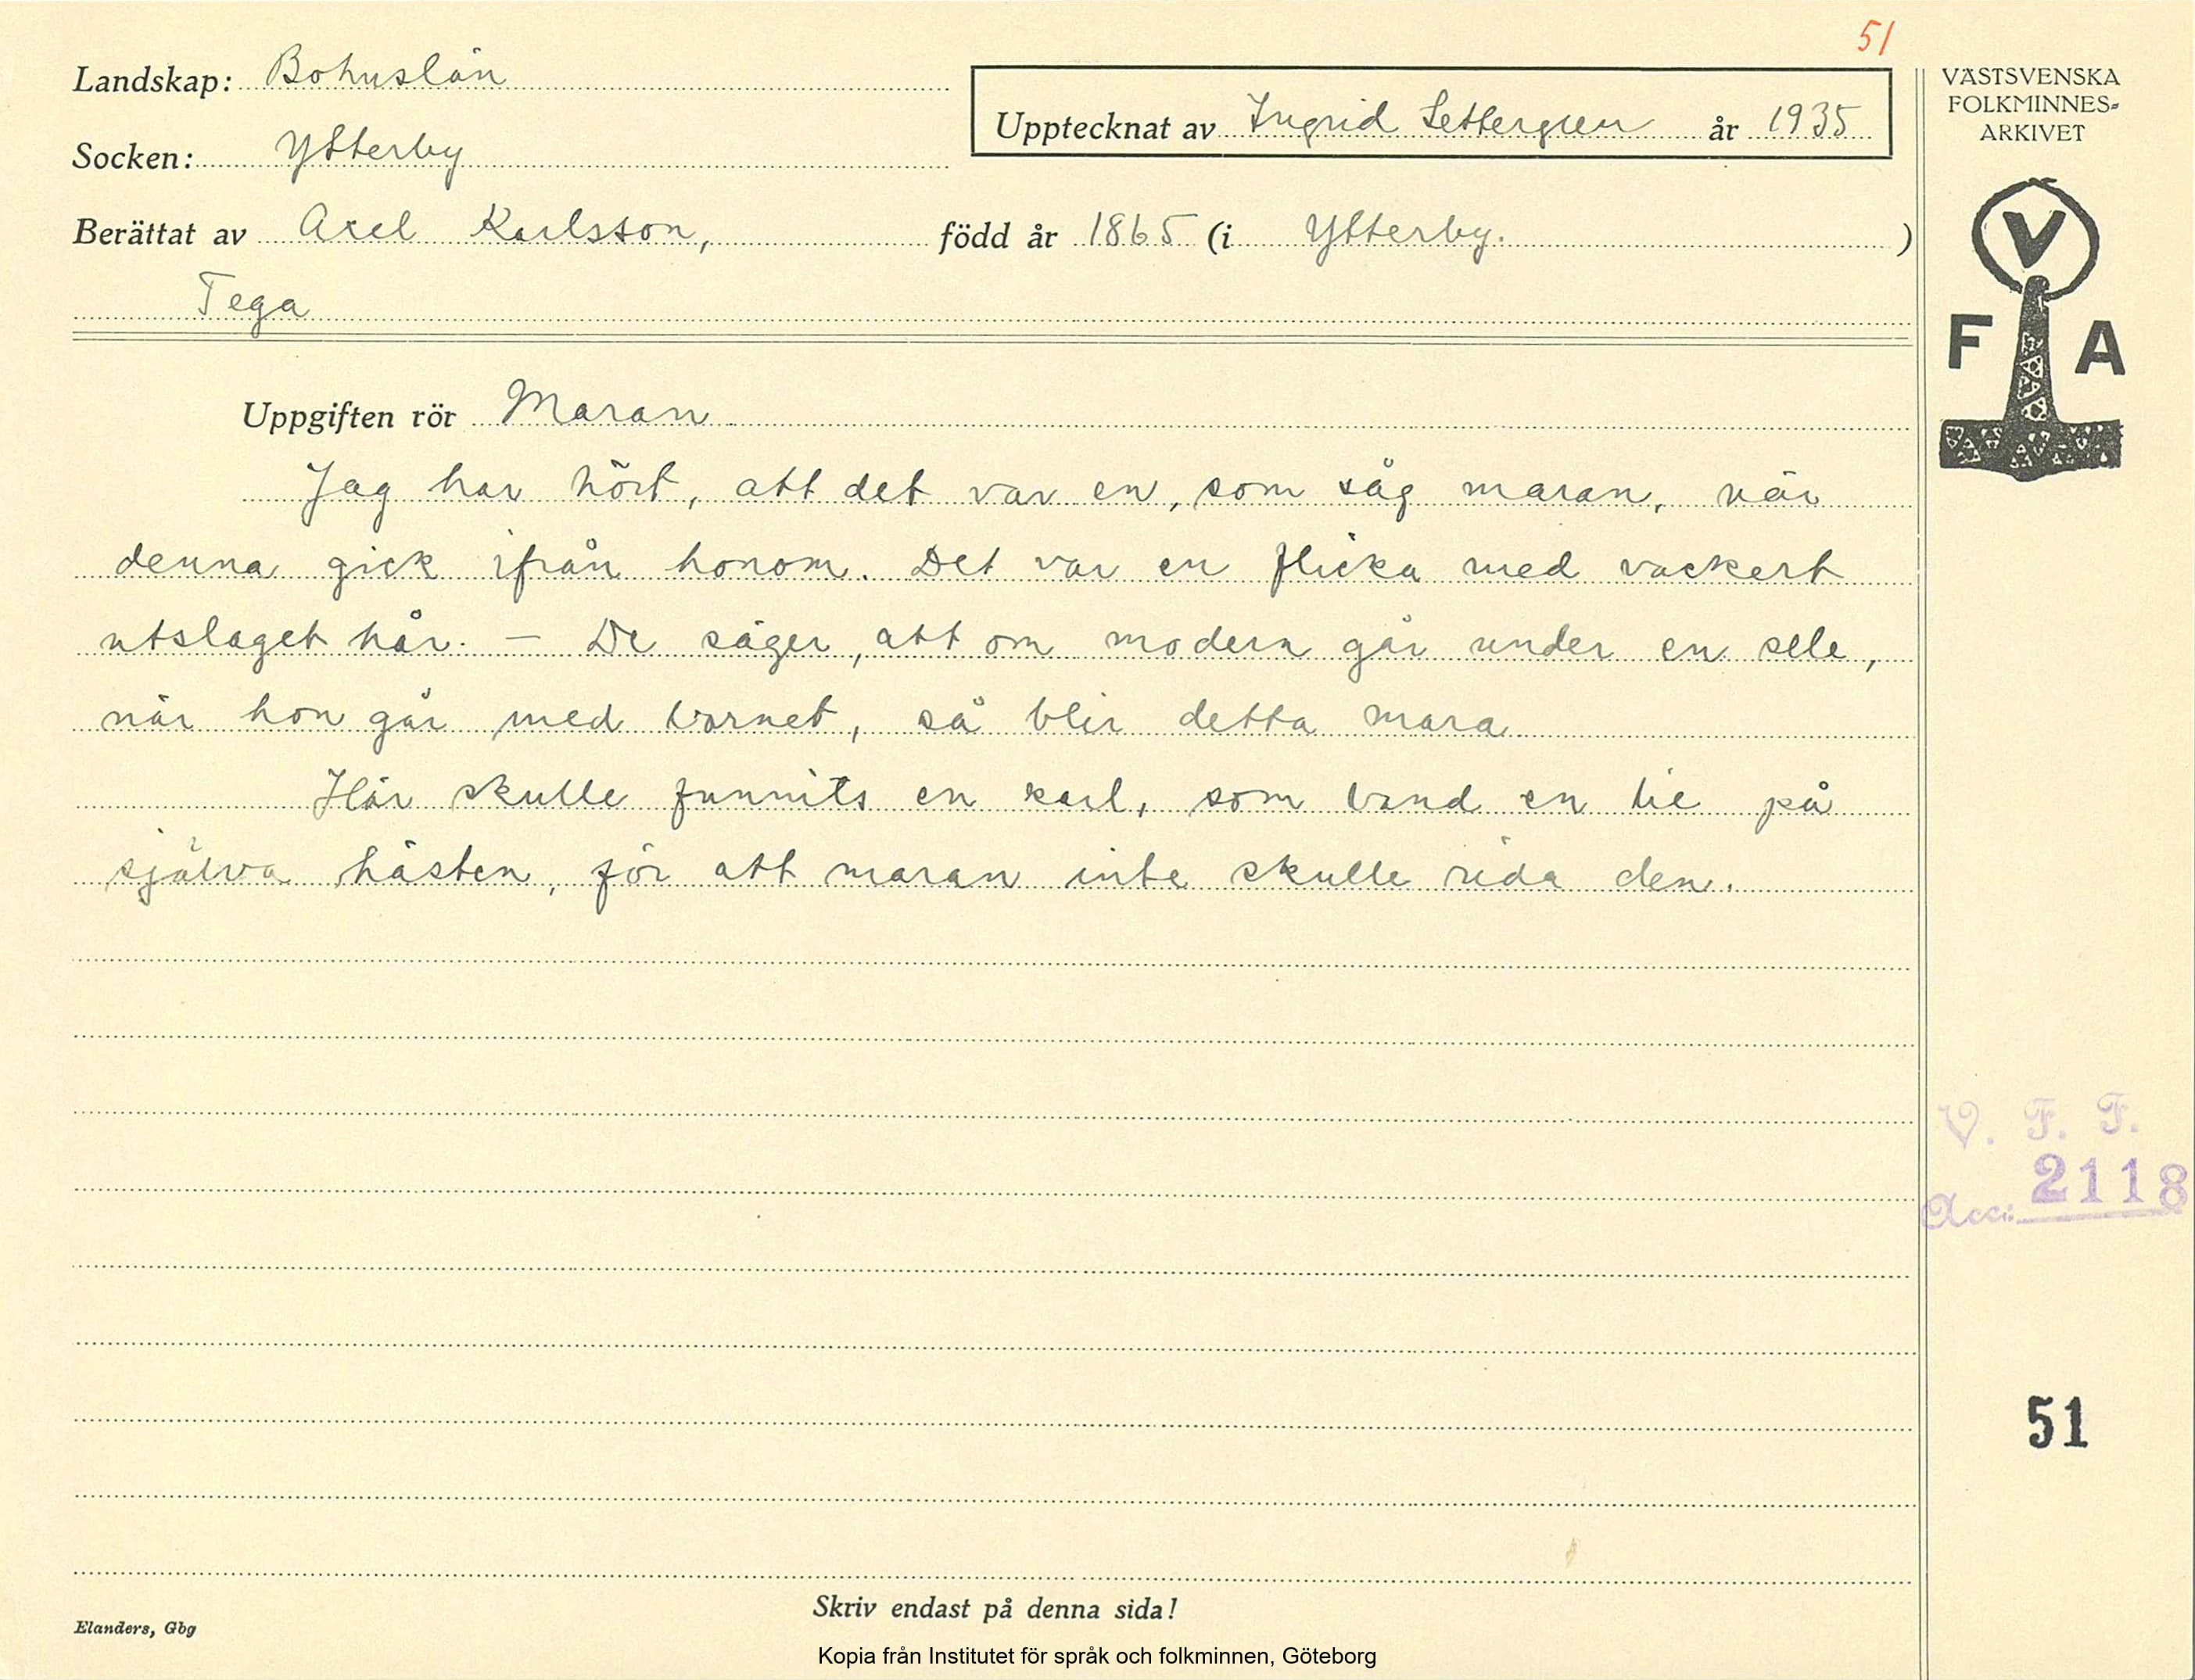 51
Landskap: Bohuslän
Socken: Ytterby
Upptecknat av Ingrid Settergren år 1935
VÄSTSVENSKA
FOLKMINNES-
ARKIVET
Berättat av Axel Karlsson, född år 1865 (i Ytterby. )
Tega
V
F A
Uppgiften rör Maran
Jag har hört, att det var en, som såg maran, när
denna gick ifrån honom. Det var en flicka med vackert
utslaget hår. – De säger, att om modern går under en sele,
när hon går med barnet, så blir detta mara
Här skulle funnits en karl, som band en lie på
själva hästen, för att maran inte skulle rida den.
V. F. F.
Acc: 2118
51
Skriv endast på denna sida!
Elanders, Gbg
Kopia från Institutet för språk och folkminnen, Göteborg